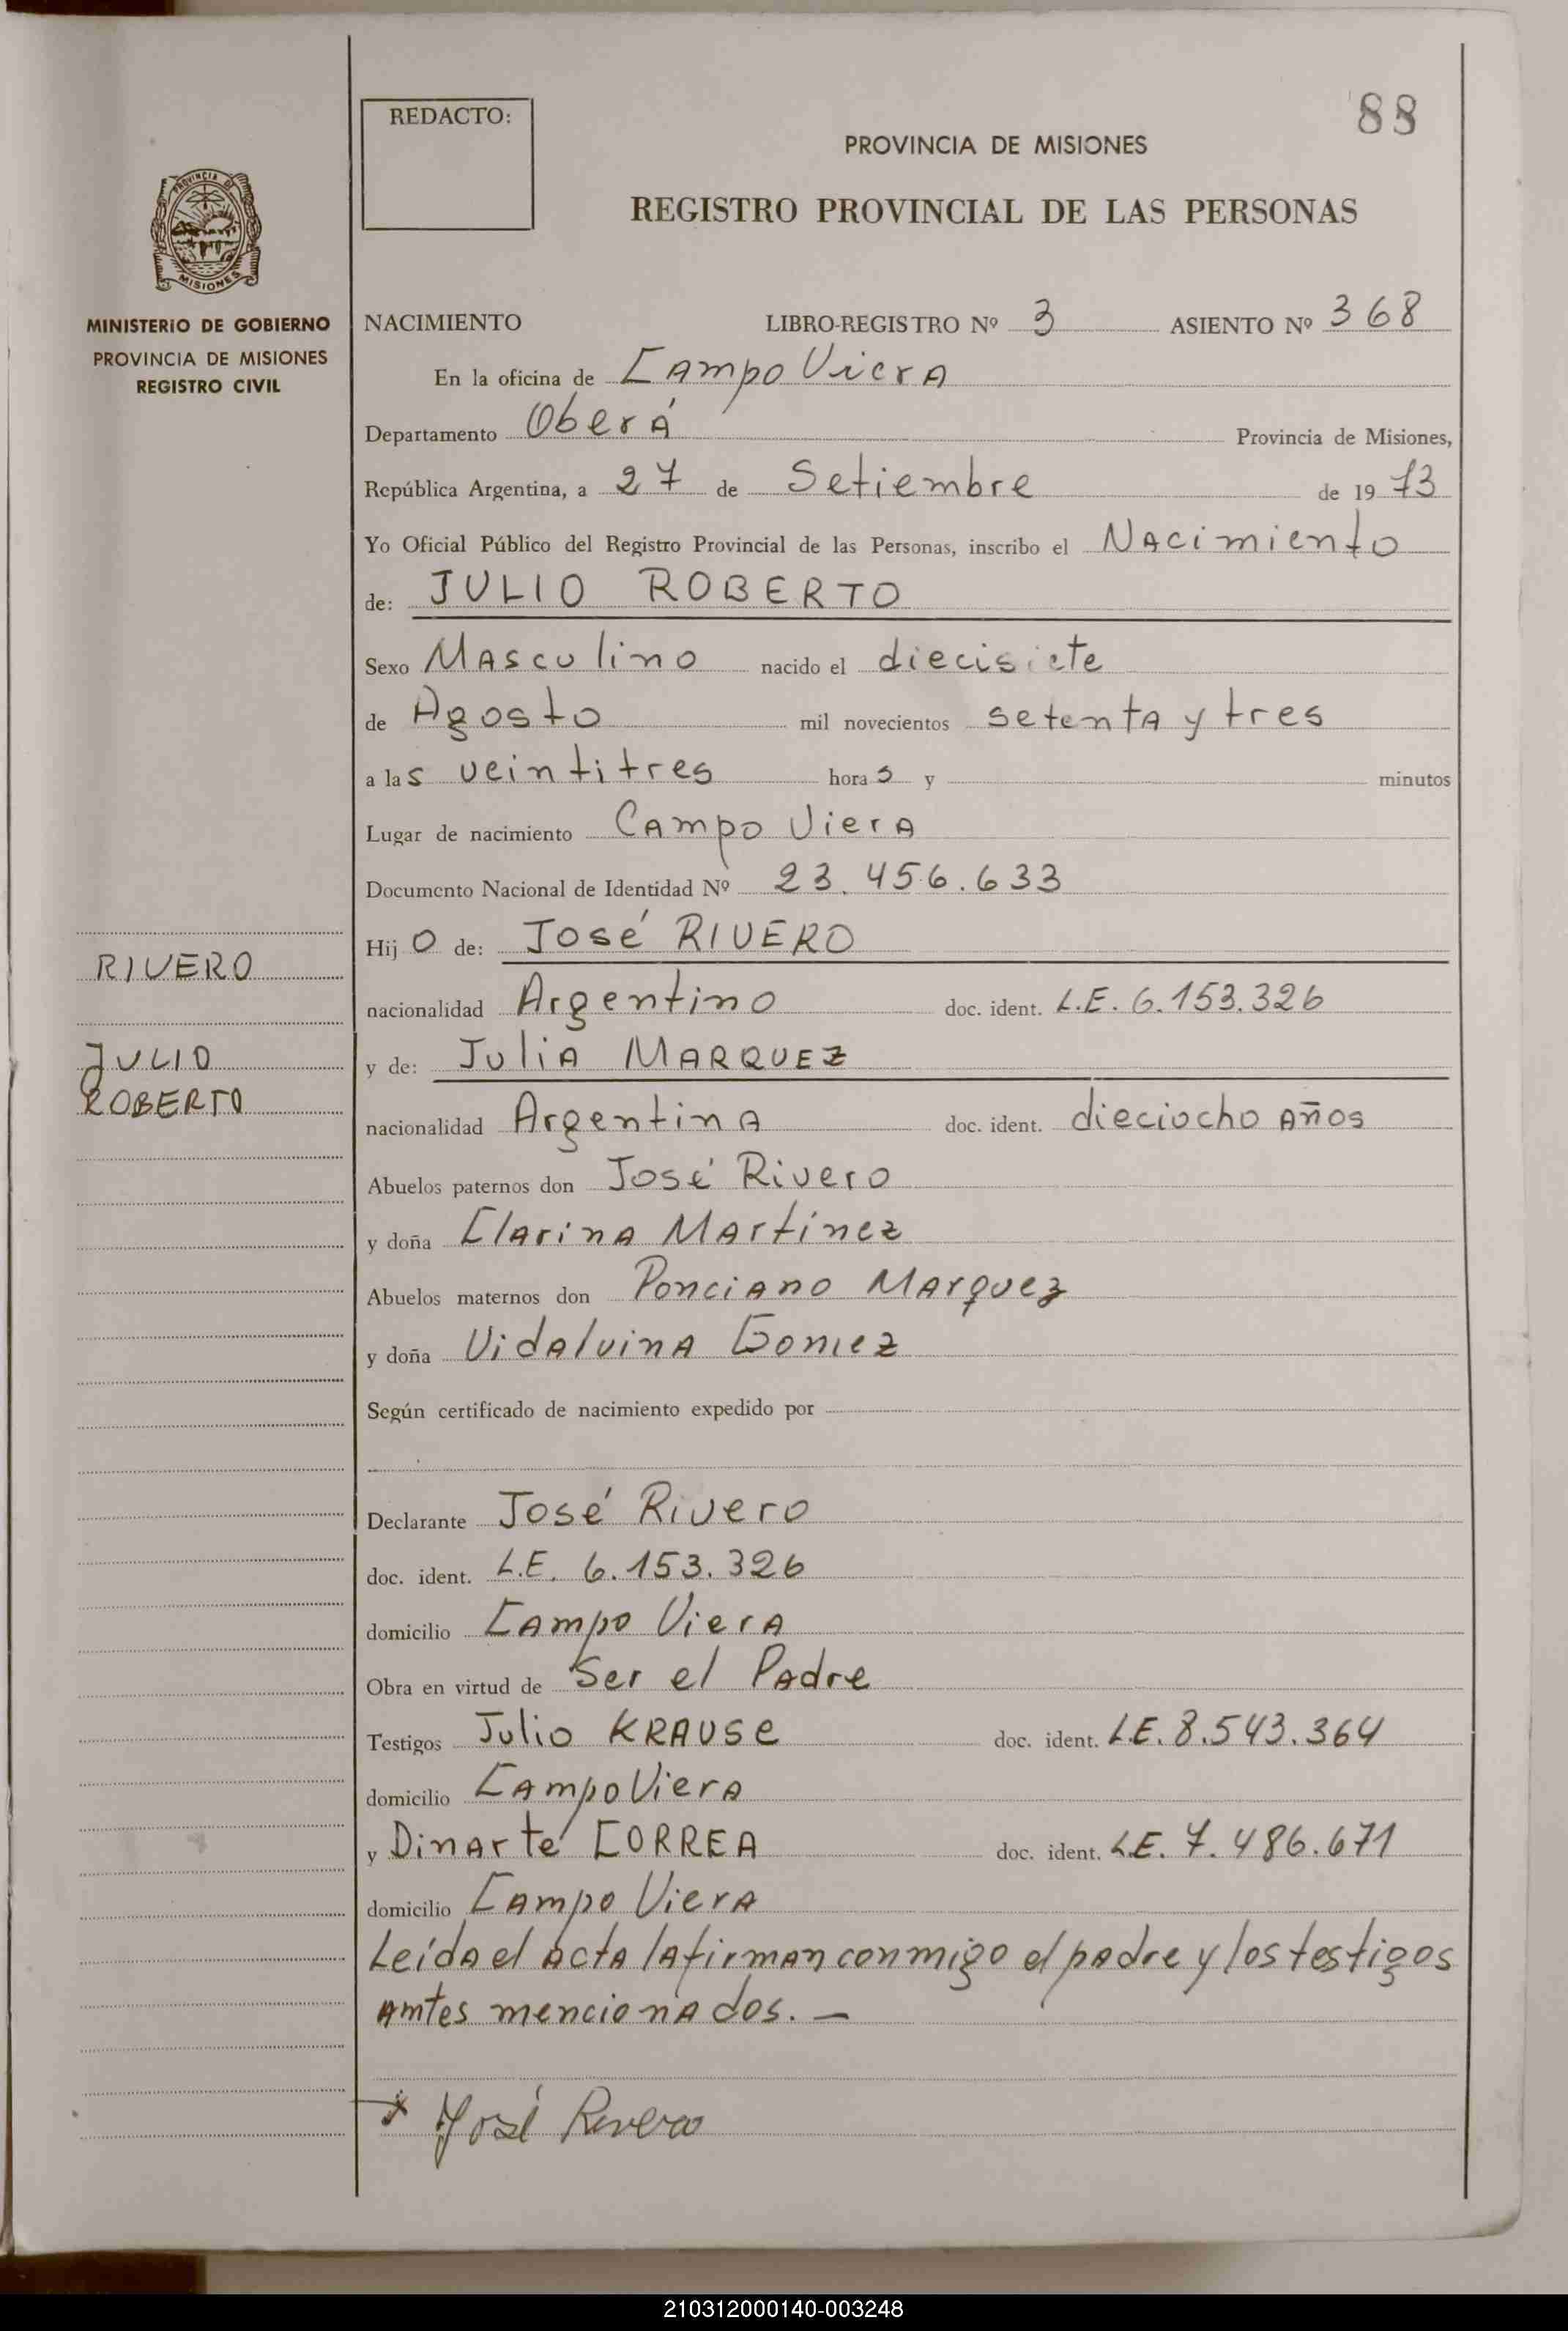 88
REDACTO:
PROVINCIA DE MISIONES
REGISTRO PROVINCIAL DE LAS PERSONAS
PROVINCIA DE
MISIONES
MINISTERIO DE GOBIERNO
PROVINCIA DE MISIONES
REGISTRO CIVIL
NACIMIENTO LIBRO-REGISTRO Nº 3 ASIENTO Nº 368
En la oficina de Campo Viera
Departamento Oberá Provincia de Misiones,
República Argentina, a 27 de Setiembre de 19 73
Yo Oficial Público del Registro Provincial de las Personas, inscribo el Nacimiento
de: JULIO ROBERTO
Sexo Masculino nacido el diecisiete
de Agosto mil novecientos setenta y tres
a las veintitres horas y minutos
Lugar de nacimiento Campo Viera
Documento Nacional de Identidad Nº 23.456.633
Hijo de: José RIVERO
RIVERO
nacionalidad Argentino doc. ident. L.E. 6.153.326
JULIO
y de: Julia MARQUEZ
ROBERTO
nacionalidad Argentina doc. ident. dieciocho años
Abuelos paternos don José Rivero
y doña Clarina Martinez
Abuelos maternos don Ponciano Marquez
y doña Vidalvina Gomez
Según certificado de nacimiento expedido por
Declarante José Rivero
doc. ident. L.E. 6.153.326
domicilio Campo Viera
Obra en virtud de Ser el Padre
Testigos Julio KRAUSe doc. ident. L.E. 8.543.364
domicilio Campo Viera
y Dinarte CORREA doc. ident. L.E. 7.486.671
domicilio Campo Viera
Leída el acta la firman conmigo el padre y los testigos
amtes mencionados. —
x José Rivero
210312000140-003248